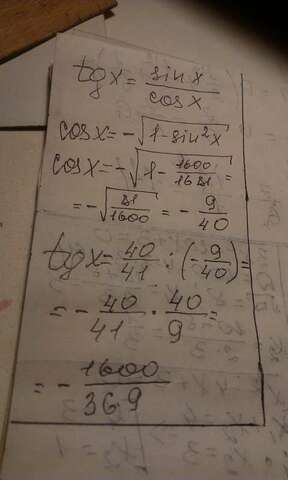 tgx = sinx/cosx
cosx = -√(1-sin²x)
cosx = -√(1 - 1600/1681) =
= -√(81/1600) = - 9/40
tgx = 40/41 : (- 9/40) =
= - 40/41 · 40/9 =
= - 1600/369